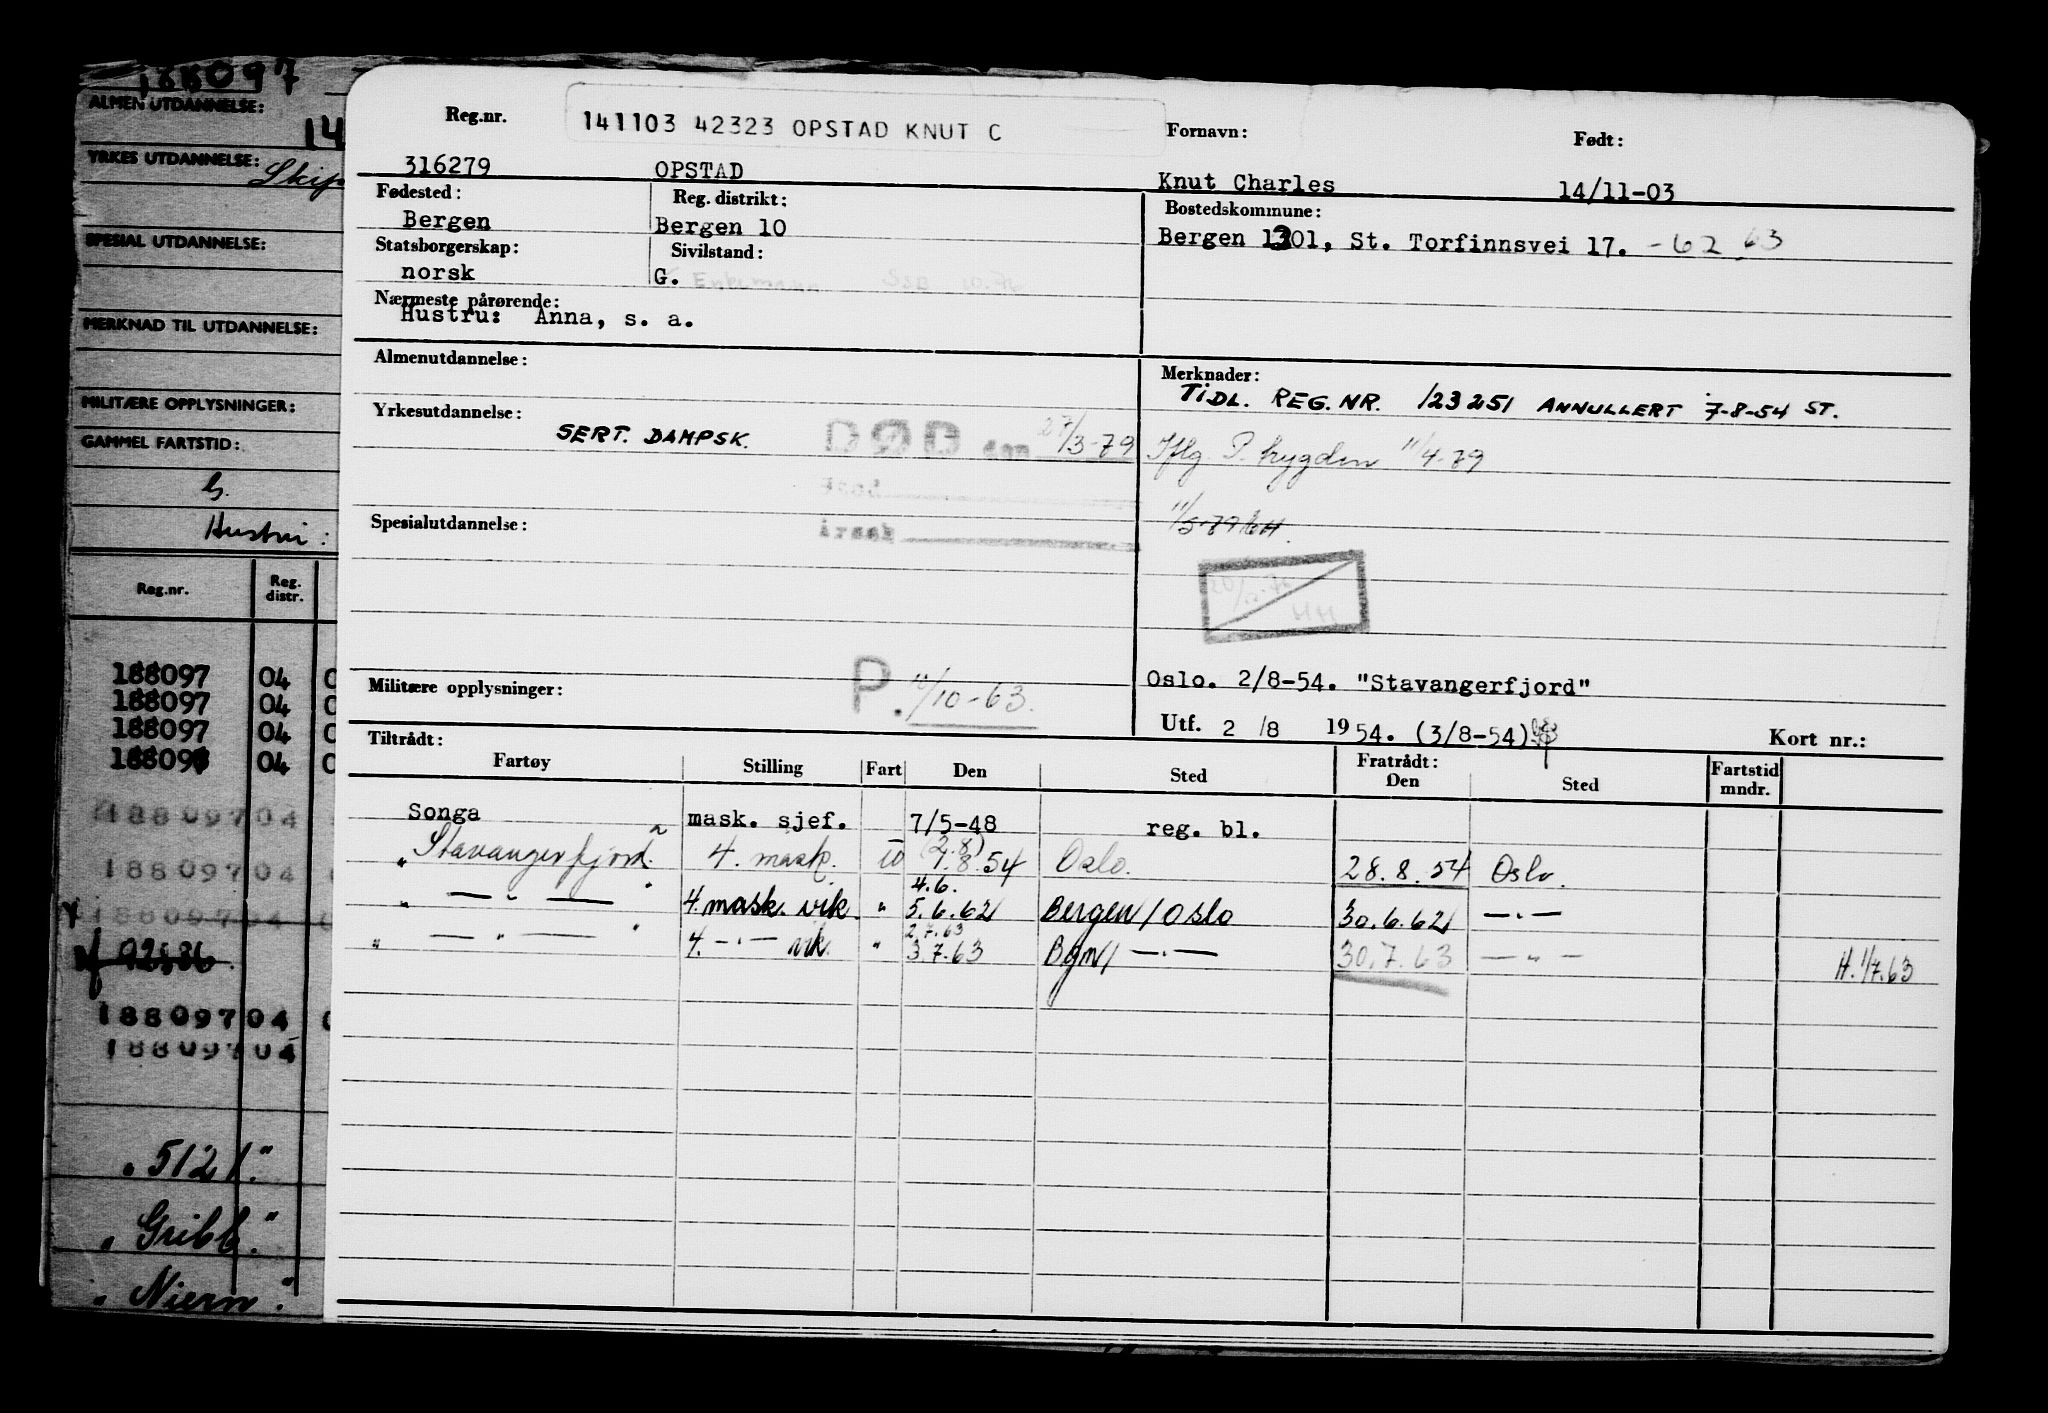 188097
ALMEN UTDANNELSE:
14
YRKES UTDANNELSE:
SPESIAL UTDANNELSE:
MERKNAD TIL UTDANNELSE:
MILITÆRE OPPLYSNINGER:
GAMMEL FARTSTID:
G.
Hustru:
Reg.nr. Reg. distr.
188097 04 0
188097 04 0
188097 04 0
188097 04 0
188097 04
188097 04
188097 04
18809704 0
18809704
"5121."
"Gribb."
"Niern."
Reg.nr. 141103 42323 OPSTAD KNUT C Fornavn: Født:
316279 OPSTAD Knut Charles 14/11-03
Fødested: Reg. distrikt: Bostedskommune:
Bergen Bergen 10 Bergen 1301, St. Torfinnsvei 17. -62 63
Statsborgerskap: Sivilstand:
norsk G. Enkemann
Nærmeste pårørende:
Hustru: Anna, s. a.
Almenutdannelse: Merknader:
TIDL. REG.NR. 123251 ANNULLERT 7-8-54 ST.
Yrkesutdannelse: SERT. DAMPSK. DØD den 27/3-79 Iflg. P. trygden 11/4-79
Sted
Spesialutdannelse: Årsak
11/5-79
HH
Militære opplysninger: P. 10-63. Oslo. 2/8-54. "Stavangerfjord"
Utf. 2/8 1954. (3/8-54) Kort nr.:
Tiltrådt: Fratrådt:
Fartøy Stilling Fart Den Sted Den Sted Fartstid mndr.
Songa mask. sjef. 7/5-48 reg. bl.
(2.8)
"Stavangerfjord" 4. mask. U 1.8.54 Oslo. 28.8.54 Oslo.
4.6.
" — " — " 4. mask. vik. " 5.6.62 Bergen/Oslo 30.6.62 — " —
2.7.63
" — " — " 4. — " — vik. " 3.7.63 Bgn/ — " — 30.7.63 — " — H. 1/7.63